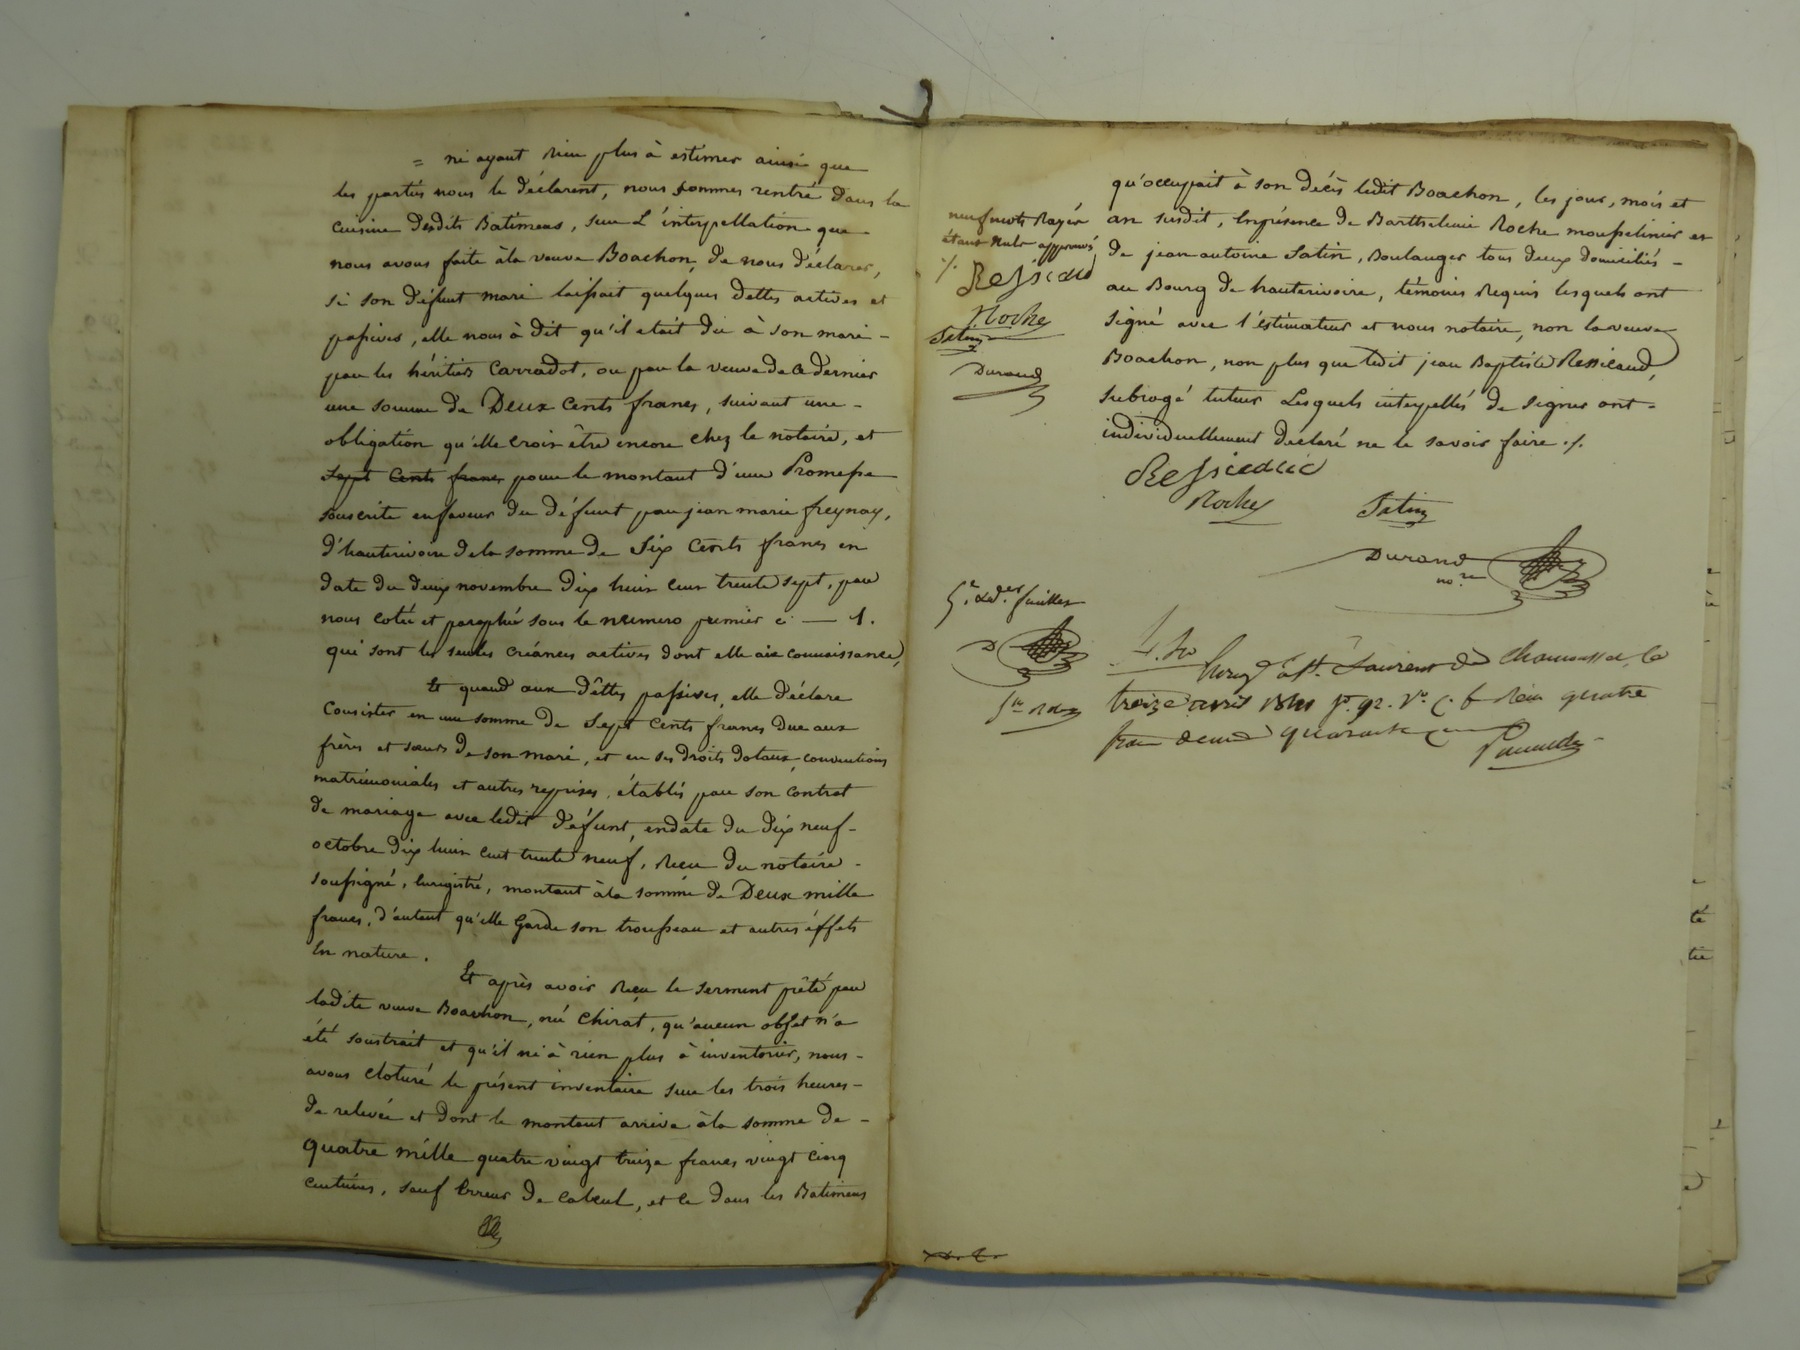 = ni ayant rien plus à estimer ainsi que
les partis nous le déclarent, nous sommes rentré dans la
cuisine desdits Batimens, sur L'interpellation que
nous avons faite à la veuve Boachon, de nous déclarer,
si son défunt mari laissait quelques dettes actives et
passives, elle nous à dit qu'il etait du à son mari -
par les héritiers Carradot, ou par la veuve de ce dernier
une somme de Deux Cents francs, suivant une -
obligation qu'elle croit être encore chez le notaire, et
Sept Cents francs pour le montant d'une Promesse
souscrite enfaveur du défunt par jean marie freynay,
d'hauterivoire de la somme de Six Cents francs en
date du deux novembre dix huit cent trente sept, par
nous coté et paraphé sous le numero premier c — 1.
qui sont les seules créances actives dont elle aie connaissance,
Et quand aux dêttes passives, elle déclare
Consister en une somme de Sept Cents francs Due aux
frères et sœurs de son mari, et en ses droits dotaux, conventions
matrimoniales et autres reprises, établis par son Contrat
de mariage avec ledit défunt, endate du dix neuf -
octobre dix huit cent trente neuf, Recu du notaire -
soussigné, Enregistré, montant à la somme de Deux mille
francs, d'autant qu'elle Garde son trousseau et autres éffets
En nature.
Et après avoir Reçu le serment prêté par
ladite veuve Boachon, né Chirat, qu'aucun objet n'a
été soustrait et qu'il ni à rien plus à inventorier, nous -
avons cloturé le présent inventaire sur les trois heures -
de relevée et dont le montant arrive à la somme de -
quatre mille quatre vingt treize francs vingt cinq
centimes, sauf Erreur de calcul, et ce dans les Batimens
qu'occupait à son décès ledit Boachon, les jour, mois et
an susdit, Enprésence de Barthelemie Roche mousselinier et
de jean antoine Satin, Boulanger tous deux domiciliés -
au Bourg de hauterivoire, témoins Requis lesquels ont
signé avec l'éstimateur et nous notaire, non la veuve
Boachon, non plus que ledit jean Baptiste Ressicaud,
subrogé tuteur Lesquels interpellés de signer ont -
individuellement déclaré ne le savoir faire ./.
neuf mots Rayés
étant Nuls approuvés
./.
Ressicaud
Roche
Satin
Durand
Ressicaud
Roche
Satin
Durand
no.re
D
Enreg. à St. Laurent de Chamousset, le
treize avril 1841 f.º 92. V.º C. 6 Reçu quatre